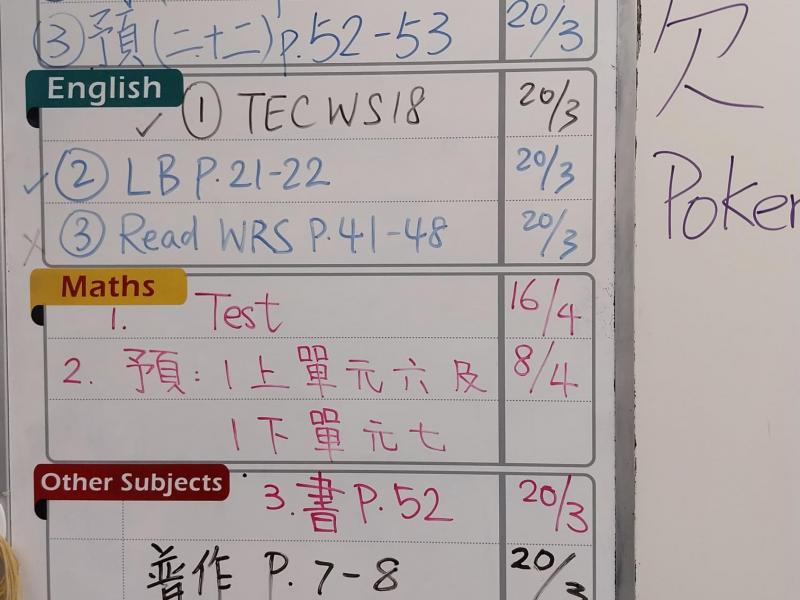 ③ 預(二十二)p.52-53 20/3
English
✓ ① TEC WS18 20/3
✓ ② LB P.21-22 20/3
✗ ③ Read WRS P.41-48 20/3
Maths
1. Test 16/4
2. 預：1上單元六及 8/4
1下單元七
Other Subjects
3. 書 P.52 20/3
普作 P.7-8 20/3
欠
Poker